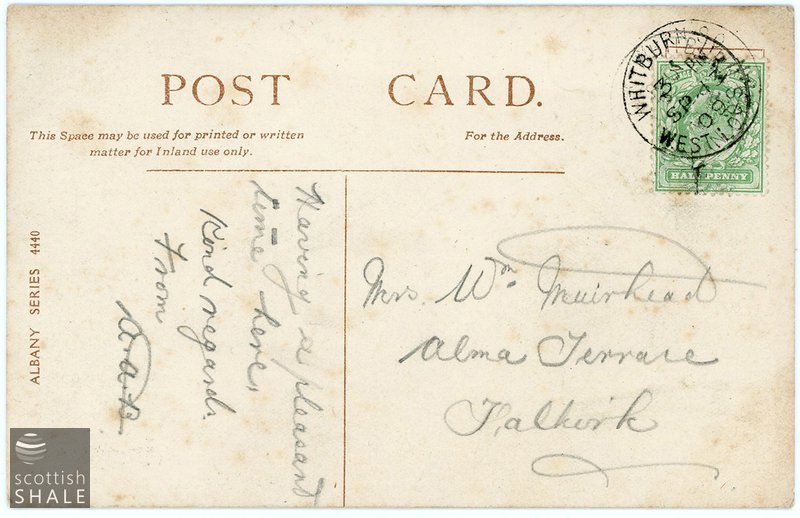 POST CARD.
This Space may be used for printed or written
matter for Inland use only.
For the Address.
WHITBURN
WEST
HALFPENNY
ALBANY SERIES 4440
Having a pleasant
time here,
Kind regards
From
Mrs. Wm Muirhead
Alma Terrace
Falkirk
scottish
SHALE